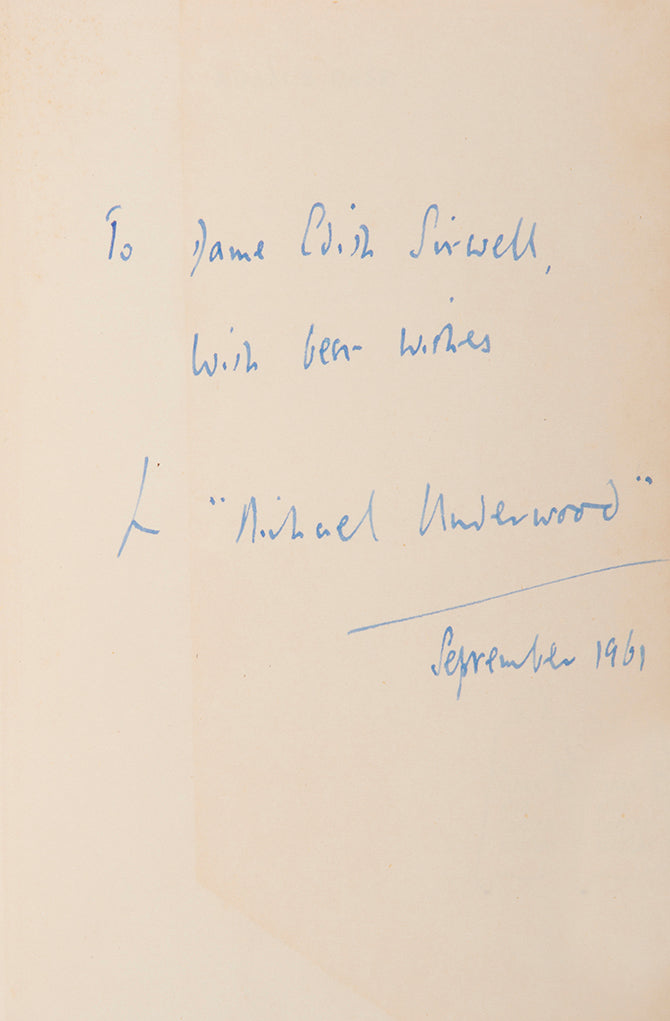 To Dame Edith Sitwell,
with best wishes
from "Michael Underwood"
September 1961